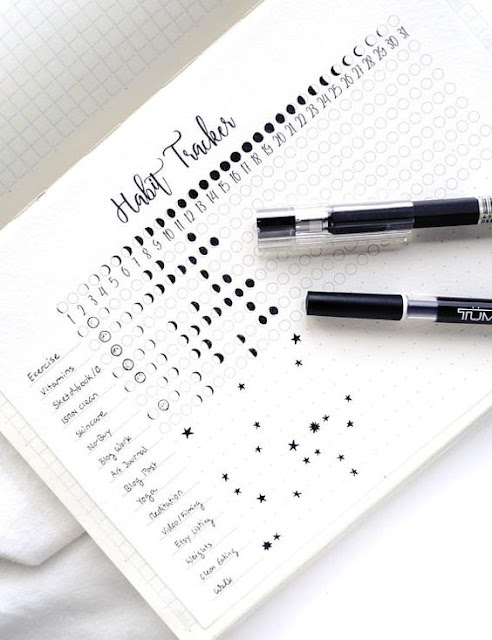 Habit Tracker
1 2 3 4 5 6 7 8 9 10 11 12 13 14 15 16 17 18 19 20 21 22 23 24 25 26 27 28 29 30 31
Exercise
Vitamins
Sketchbook/O
clean
Skincare
No-Buy
Blog Work
Art Journal
Blog Post
Yoga
Meditation
Video/Filming
Etsy Listing
Weights
Clean Eating
Walk
TUM